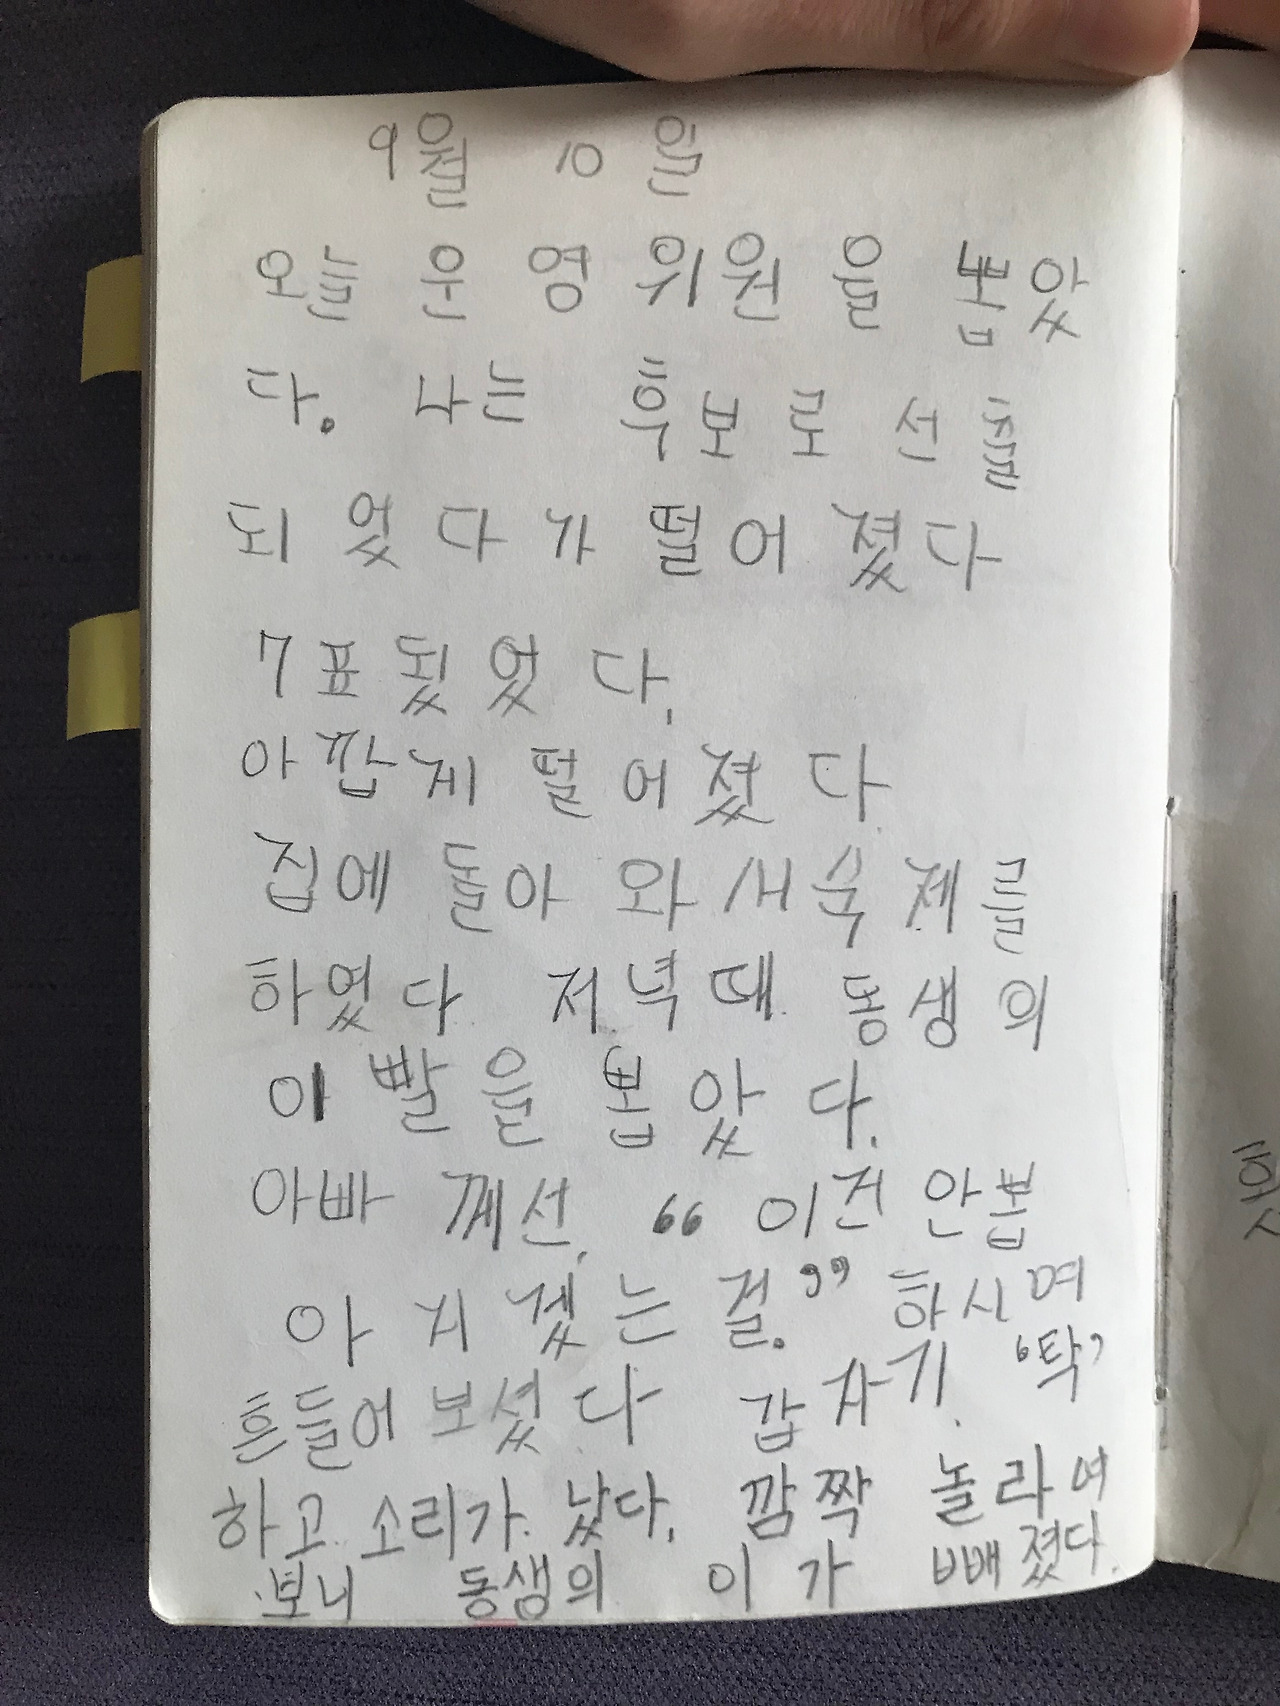 9월 10일
오늘 운영위원을 뽑았
다. 나는 후보로 선출
되었다가 떨어졌다
7표 됬었다.
아깝게 떨어졌다.
집에 돌아와서 숙제를
하였다 저녁때 동생의
이빨을 뽑았다.
아빠께선, "이건 안뽑
아지겠는걸." 하시며
흔들어보셨다 갑자기. '탁'
하고 소리가 났다. 깜짝 놀라여
보니 동생의 이가 빠졌다.